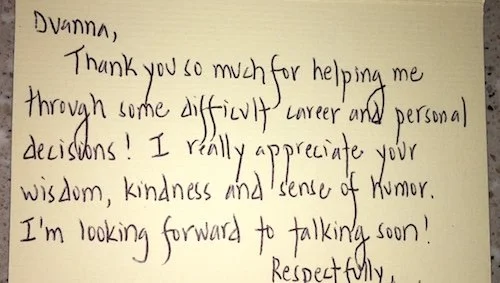 Dvanna,
Thank you so much for helping me
through some difficult career and personal
decisions! I really appreciate your
wisdom, kindness and sense of humor.
I'm looking forward to talking soon!
Respectfully,